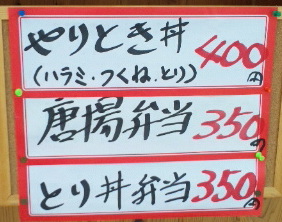 やりとき丼 400円
(ハラミ・つくね・とり)
唐揚弁当 350円
とり丼弁当 350円